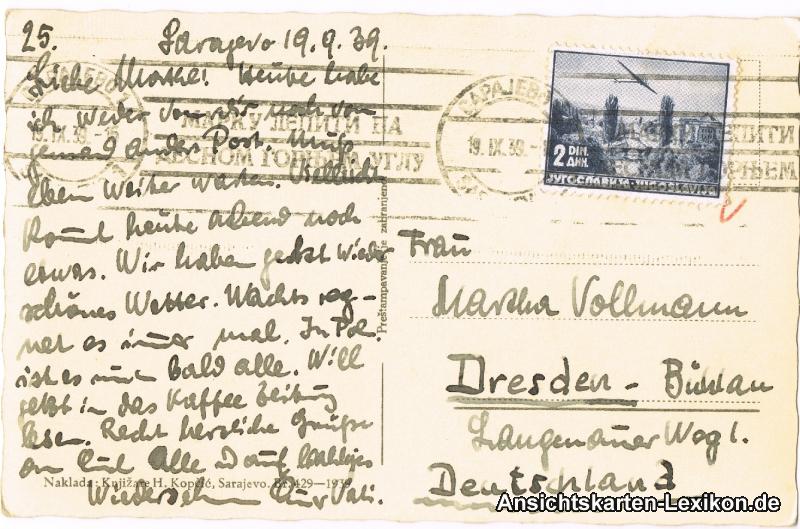 25. Sarajevo 19.9.39.
Liebe Martha! Heute habe
ich weder von dir noch von
jemand anders Post. Muß
eben weiter warten. Vielleicht
kommt heute abend noch
etwas. Wir haben jetzt wieder
schönes Wetter. Nachts reg-
net es immer mal. In Pol.
ist es nun bald alle. Will
jetzt in das Kaffee Zeitung
lesen. Recht herzliche Grüße
an Euch Alle und auf baldiges
Wiedersehn Euer Vati.
Naklada: Knjižare H. Kopčić, Sarajevo. Br. 429—1939
Preštampavanje zabranjeno
САРАЈЕВО
19.IX.39.-15
МАРКУ ЛЕПИТИ НА
ДЕСНОМ ГОРЊЕМ УГЛУ
САРАЈЕВО
19.IX.39.
ЛЕПИТИ
ГОРЊЕМ
2 DIN.
ДИН.
ЈУГОСЛАВИЈА
Frau
Martha Vollmann
Dresden - Bühlau
Langenauer Weg 1.
Deutschland
Ansichtskarten-Lexikon.de